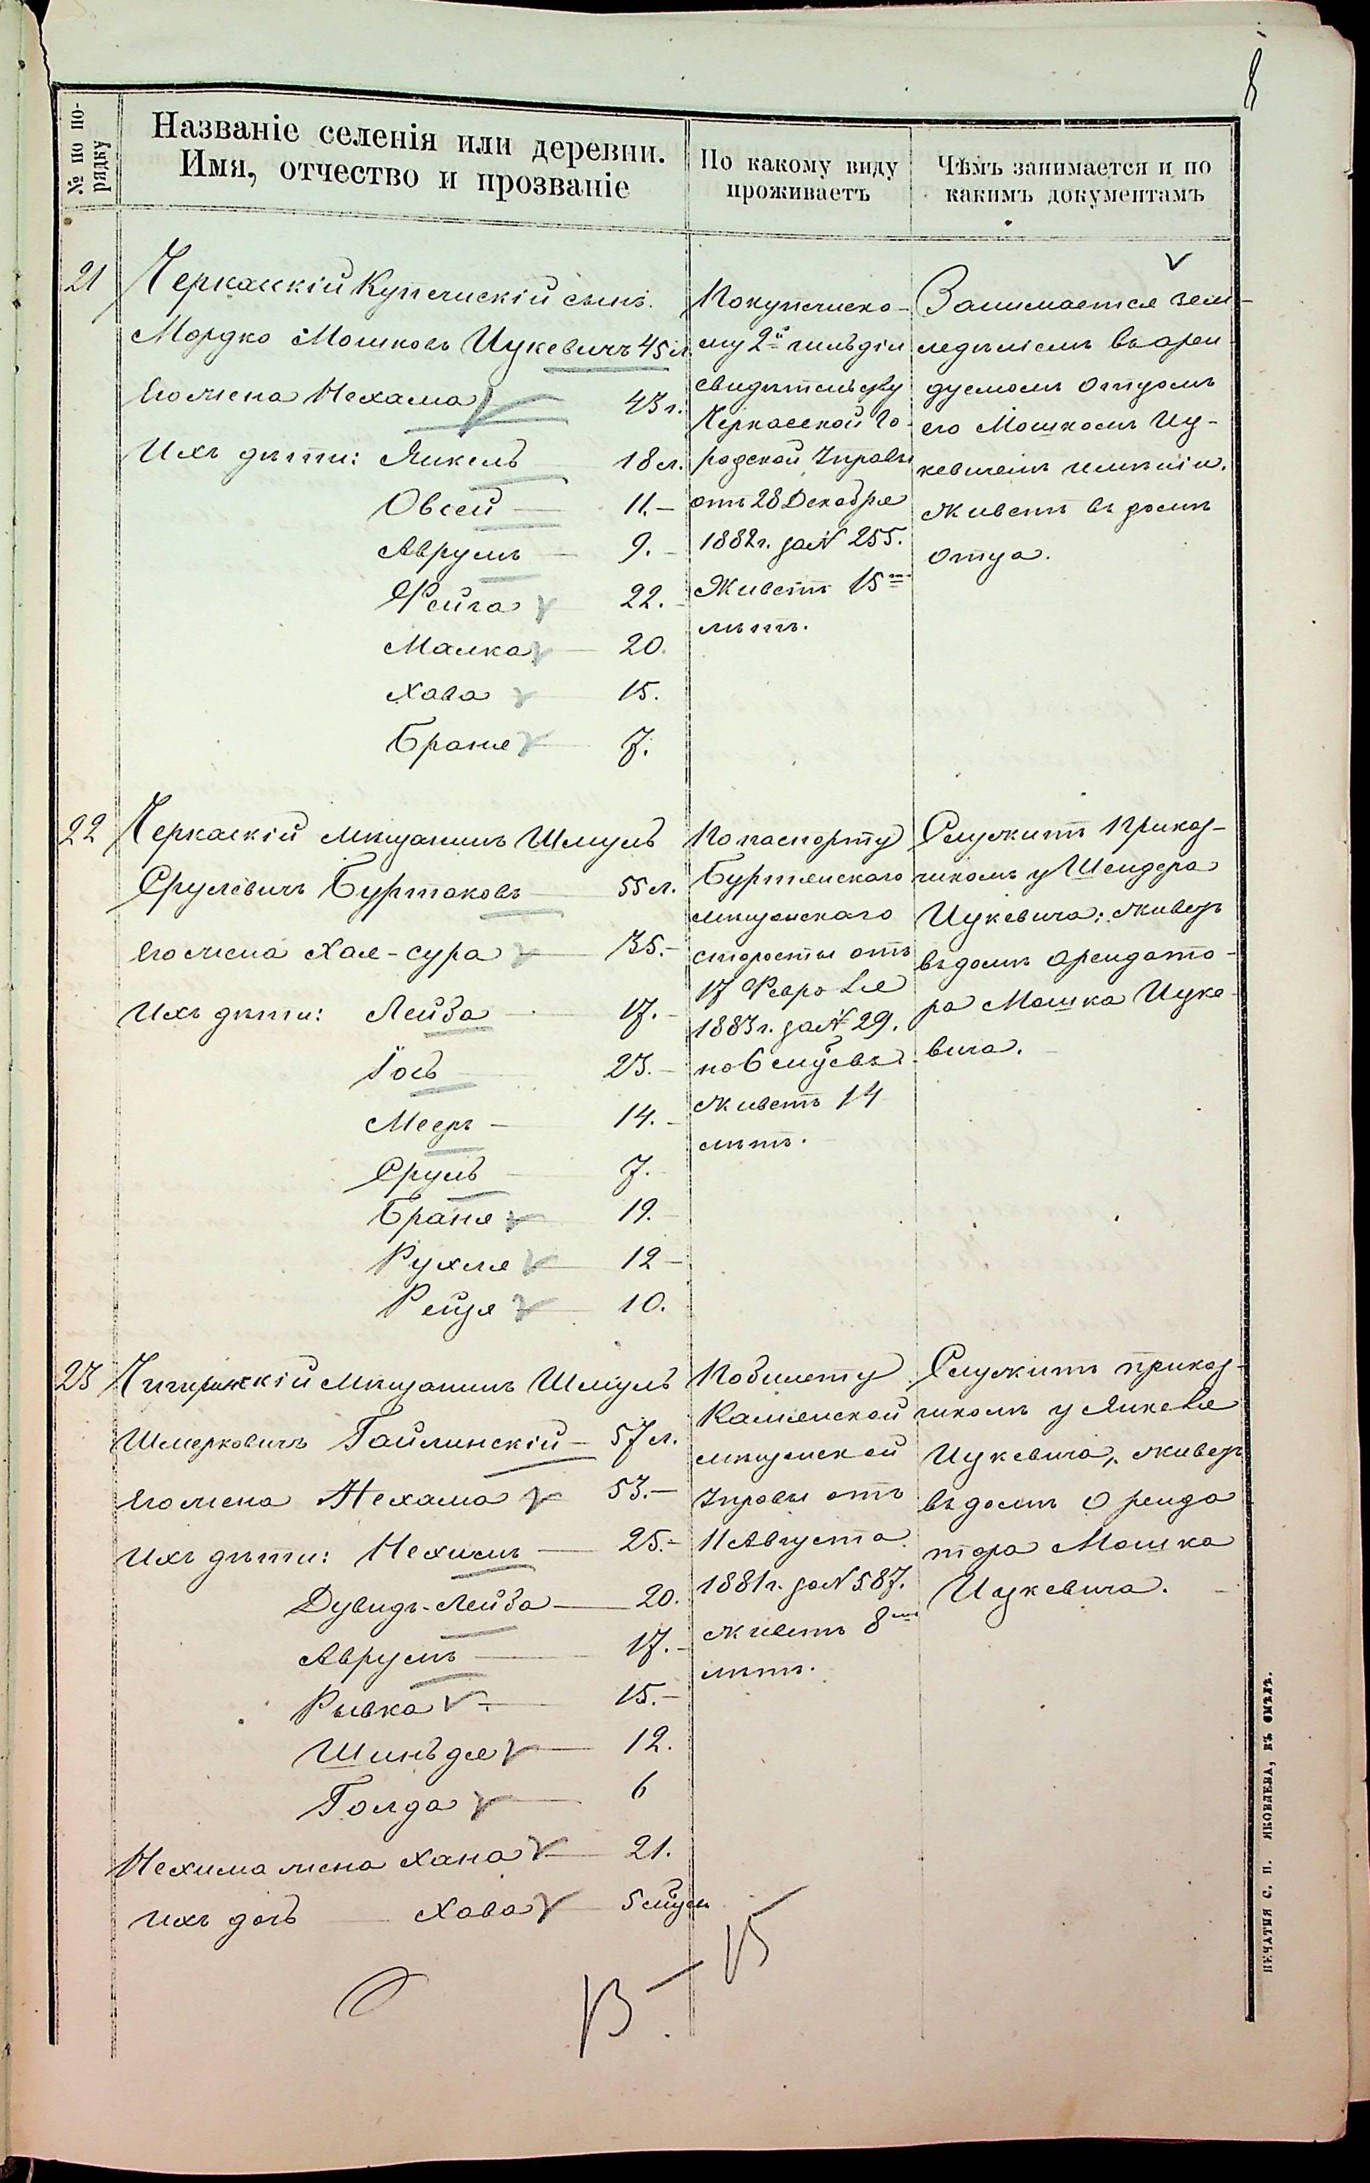 8
№ по по-
рядку
Названіе селенія или деревни.
Имя, отчество и прозваніе
По какому виду
проживаетъ
Чѣмъ занимается и по
какимъ документамъ
21
Черкаскій Купеческій сынъ
Мордко Мошковъ Цукевичъ 45 л.
Его жена Нехама 43 г.
Ихъ дѣти: Янкель 18 л.
Овсей 11.
Аврумъ 9.
Фейга 22.
Малка 20.
Хава 15.
Браня 7.
По купеческо-
му 2й гильдіи
свидѣтельству
Черкасской Го-
родской Управы
отъ 28 Декабря
1882 г. за № 255.
Живетъ 15ть
лѣтъ.
Занимается земле-
дѣліемъ въ арен-
дуемомъ отцомъ
его Мошкомъ Цу-
кевичемъ имѣніи.
Живетъ въ домѣ
отца.
22
Черкаскій мѣщанинъ Шмуль
Срулевичъ Буртаковъ 55 л.
Его жена Хая-сура 35.
Ихъ дѣти: Лейба 17.
Іось 23.
Мееръ 14.
Сруль 7.
Браня 19.
Рухля 12
Рейзя 10.
По паспорту
Буртянскаго
мѣщанскаго
старосты отъ
17 Февраля
1883 г. за № 29.
на 6 мѣсяцевъ
Живетъ 14
лѣтъ.
Служитъ приказ-
чикомъ у Шендера
Цукевича; живетъ
въ домѣ арендато-
ра Мошка Цуке-
вича.
23
Чигиринскій мѣщанинъ Шмуль
Шмерковичъ Гайлинскій 57 л.
Его жена Нехама 53.
Ихъ дѣти: Нехимъ 25.
Дувидъ-Лейба 20.
Аврумъ 17.
Рывка 15.
Шиньдля 12.
Голда 6
Нехима жена Хана 21.
ихъ дочь Хава 5 мѣсяц
По билету
Каменской
мѣщанской
Управы отъ
11 Августа
1881 г. за № 587.
живетъ 8мь
лѣтъ.
Служитъ приказ-
чикомъ у Янкеля
Цукевича, живетъ
въ домѣ Аренда
тора Мошка
Цукевича.
13 — 15
ПЕЧАТНЯ С. П. ЯКОВЛЕВА, ВЪ СМѢЛѢ.